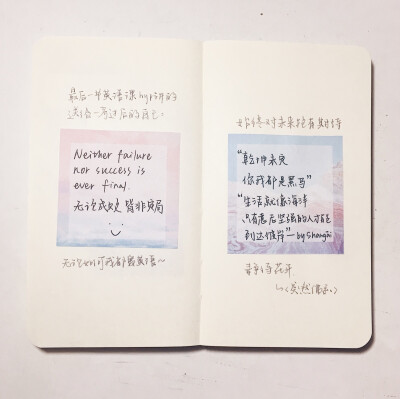 最后一节英语课hyp讲的
送给一考过后的自己。
Neither failure
nor success is
ever final.
无论成败 皆非定局
无论如何我都爱英语~
始终对未来抱有期待
“乾坤未定
你我都是黑马”
“生活就像海洋
只有意志坚强的人才能
到达彼岸”—by
静待花开